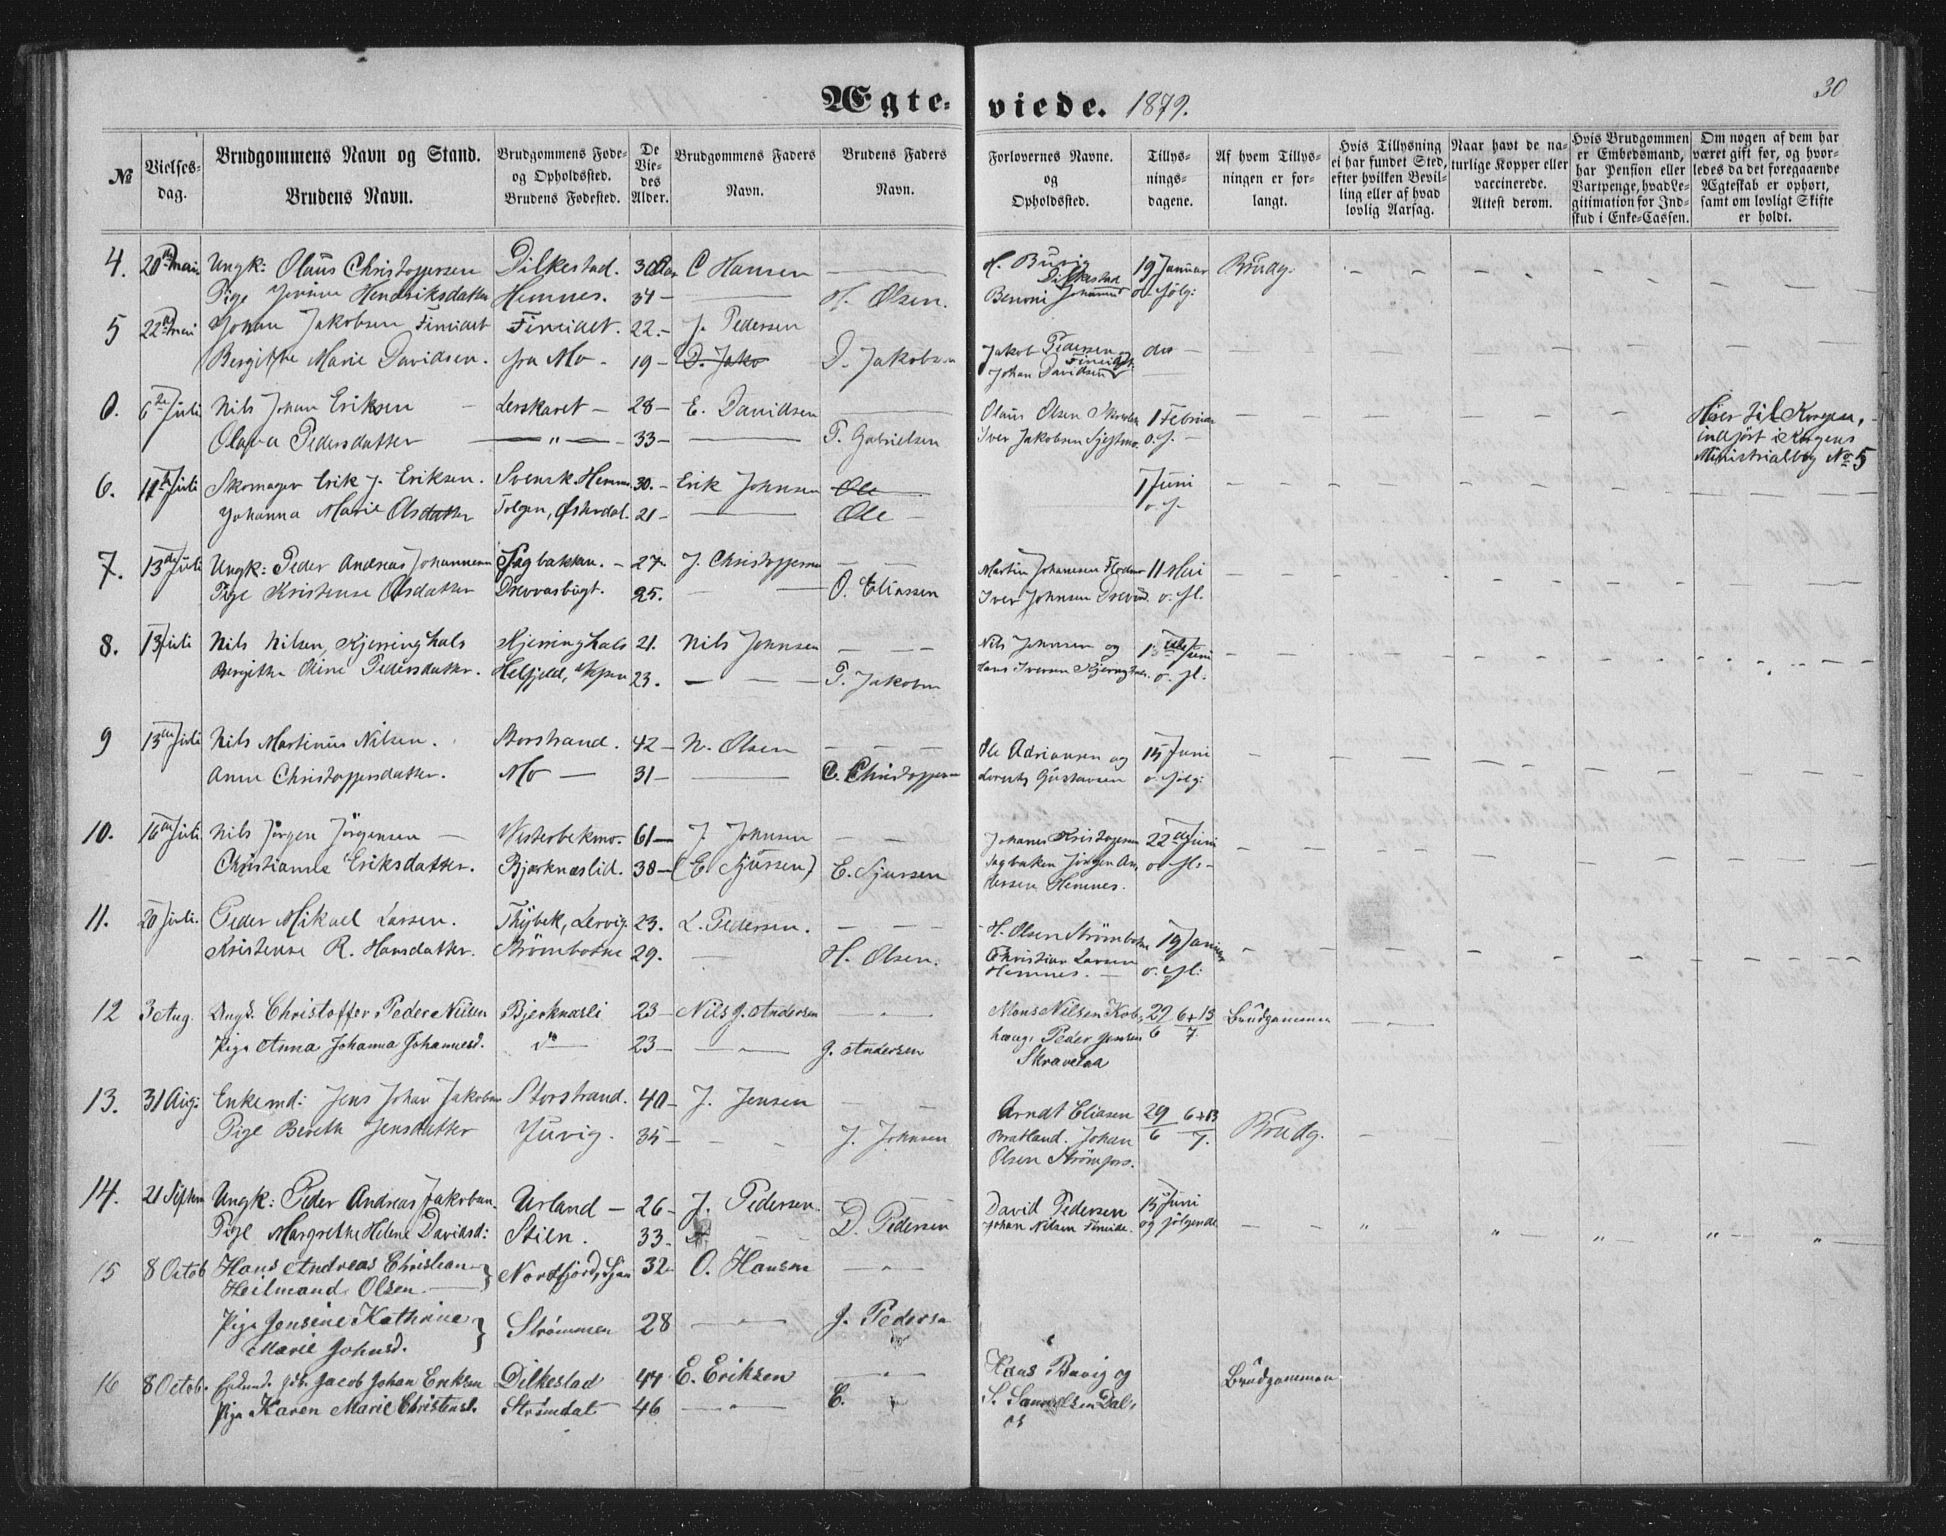 30
Ægte- viede. 1879.
№
Vielses-
dag.
Brudgommens Navn og Stand.
Brudens Navn.
Brudgommens Føde-
og Opholdssted.
Brudens Fødested.
De
Vie-
des
Alder.
Brudgommens Faders
Navn.
Brudens Faders
Navn.
Forlovernes Navne.
og
Opholdssted.
Tillys-
nings-
dagene.
Af hvem Tillys-
ningen er for-
langt.
Hvis Tillysning
ei har fundet Sted,
efter hvilken Bevil-
ling eller af hvad
lovlig Aarsag.
Naar havt de na-
turlige Kopper eller
vaccinerede.
Attest derom.
Hvis Brudgommen
er Embedsmand,
har Pension eller
Vartpenge, hvad Le-
gitimation for Ind-
skud i Enke-Cassen.
Om nogen af dem har
været gift før, og hvor-
ledes da det foregaaende
Ægteskab er ophørt,
samt om lovligt Skifte
er holdt.
4. 20de mai Ungk: Olaus Christophersen Dilkestad. 30 Aar C Hansen — H. Buvig Dilkestad 19 Januar Brudg.
Pige Hendriksdatter Hemnes. 34 — H. Olsen. Benoni Johanns o. følg:
5 22de mai Johan Jakobsen Fineidet Fineidet. 22. J. Pedersen Jakob Pedersen do
Bergitthe Marie Davidsen. fra Mo 19 D. Jako D. Jakobsen Fineidet Johan Davidsen
0. 6te Juli Nils Johan Eriksen Lerskaret 28 E. Davidsen Olaus Olsen 1 Februar Hører til Korgen,
Olava Pedersdatter — " — 33 P. Gabrielsen Iver Jakobsen o. f. indført i Korgens
Ministrialbog No 5
6. 11te Juli Skomager Erik J. Eriksen. Svensk. Hemnes 30. Erik Johnsen Ole 1 Juni
Johanna Marie Olsdatter Tolgen, Østerdal. 21 Ole o. f.
7. 13de Juli Ungk: Peder Andreas Johannesen Sagbakken. 27 J. Christophersen Martin Johannesen 11 Mai
Pige Kristense Olsdatter Drevvasbugt. 25. O. Eliassen Iver Johnsen o. fl.
8. 13 Juli Nils Nilsen, Kjerringhals Kjerringhals 21. Nils Johnsen Nils Johnsen og Juni
Bergitha Oline Pedersdatter. 23. P. Jakobsen Hans Iversen o. fl.
9 13de Juli Nils Martinus Nilsen. Storstrand. 42 N. Olsen Ole Adriansen og 15 Juni
Anne Christophersdatter. Mo 31 C. Christophersen Lorents Gustavsen o. følg:
10. 16de Juli Nils Jørgen Jørgensen 61 J. Johnsen Johanes Kristophersen 22de Juni
Christianna Eriksdatter. Bjerknæslid. 38 (E Sjursen) E. Sjursen Sagbakken Jørgen An- o. fl.
dersen Hemnes.
11. 20 Juli. Peder Mikael Larsen. Thybek, Lervig. 23. L. Pedersen. H. Olsen Strømbotne 19 Januar
Kristense R. Hansdatter. Strømbotne 29. H. Olsen. Christian Larsen o. fl.
Hemnes.
12 3 Aug. Ungk. Christoffer Peder Nilsen Bjerknæsli 23 Nils J. Andersen Mons Nilsen Kob- 29/6 6+13/7 Brudgommen
Pige Anna Johanna Johannesd. do 23 J. Andersen haug, Peder Jensen
Skravelaa
13. 31 Aug: Enkemd: Jens Johan Jakobsen Storstrand. 40 J. Jensen Arndt Eliasen 29/6 6+13/7. Brudg.
Pige Bereth Jensdatter Juvig. 35 J. Johnsen Bratland. Johan
Olsen Strømfors.
14. 21 Septem Ungk: Peder Andreas Jakobsen. Urland 26 J. Pedersen. David Pedersen 15 Juni
Pige Margrethe Helene Davidsd: Stien. 33. D. Pedersen Johan Nilsen Fineide. og følgende
15 8 Octob Hans Andreas Christian Nordfjord, 32 O. Hansen
Heilmand Olsen
Pige Jensine Kathrine Strømmen 28 J. Pedersen
Marie Johnsd.
16 8 Octob. Jacob Johan Eriksen Dilkestad 44 E. Eriksen Hans Buvig og Brudgommen
Pige Karen Marie Christensd. Strømdal 46 C. S. Samuelsen Dal-
os